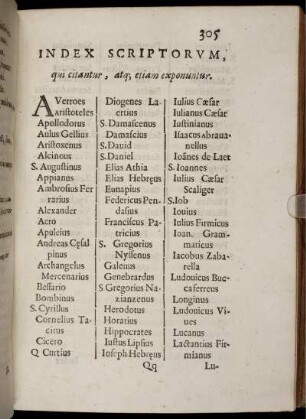 305
INDEX SCRIPTORVM,
qui citantur, atq; etiam exponuntur.
Averroes
Aristoteles
Apollodorus
Aulus Gellius
Aristoxenus
Alcinous
S. Augustinus
Appianus
Ambrosius Fer
rarius
Alexander
Acro
Apuleius
Andreas Cęsal
pinus
Archangelus
Mercenarius
Bessario
Bombinus
S. Cyrillus
Cornelius Ta-
citus
Cicero
Q Curtius
Diogenes La-
ertius
S. Damascenus
Damascius
S. Dauid
S. Daniel
Elias Athia
Elias Hebręus
Eunapius
Federicus Pen-
dasius
Franciscus Pa-
tricius
S. Gregorius
Nyssenus
Galenus
Genebrardus
S Gregorius Na-
zianzenus
Herodotus
Horatius
Hippocrates
Iustus Lipsius
Ioseph Hebręus
Qq
Iulius Cæsar
Iulianus Cæsar
Iustinianus
Isaacus abraua-
nellus
Ioānes de Laet
S. Ioannes
Iulius Cæsar
Scaliger
S. Iob
Iouius
Iulius Firmicus
Ioan. Gram-
maticus
Iacobus Zaba-
rella
Ludouicus Buc-
caferreus
Longinus
Ludouicus Vi-
ues
Lucanus
Lactantius Fir-
mianus
Lu-